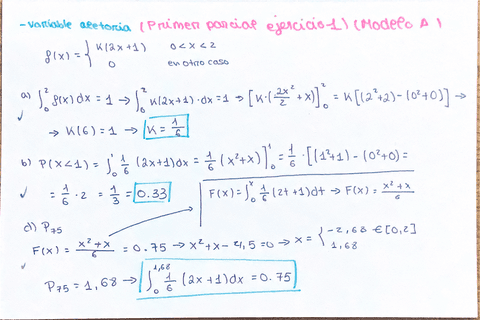 -variable aleatoria (Primer parcial ejercicio-1) (Modelo A)
f(x) = { K(2x+1) 0<x<2
0 en otro caso
a) ∫₀² f(x) dx = 1 → ∫₀² K(2x+1)·dx = 1 → [K·(2x²/2 + x)]₀² = K[(2²+2)-(0²+0)] →
✓ → K(6) = 1 → K = 1/6
b) P(x<1) = ∫₀¹ 1/6 (2x+1)dx = 1/6 (x²+x)]₀¹ = 1/6 · [(1²+1)-(0²+0) =
✓ = 1/6 · 2 = 1/3 = 0.33 F(x) = ∫₀ˣ 1/6 (2t+1)dt → F(x) = x²+x/6
d) P₇₅
F(x) = x²+x/6 = 0.75 → x²+x-4,5=0 → x = { -2,68 ∈ [0,2]
1,68
✓ P₇₅ = 1,68 → ∫₀^1,68 1/6 (2x+1)dx = 0.75